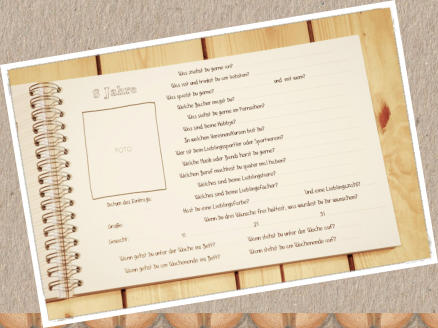 8 Jahre
Was ziehst Du gerne an?
Was isst und trinkst Du am liebsten?
und mit wem?
Was spielst Du gerne?
Welche Bücher magst Du?
Was siehst Du gerne im Fernsehen?
Was sind Deine Hobbys?
In welchen Vereinen/Kursen bist Du?
Wer ist Dein Lieblingssportler oder Sportverein?
Welche Musik oder Bands hörst Du gerne?
Welchen Beruf möchtest Du später mal haben?
Welches sind Deine Lieblingstiere?
Welches sind Deine Lieblingsfächer?
Hast Du eine Lieblingsfarbe?
Und eine Lieblingszahl?
Wenn Du drei Wünsche frei hättest, was würdest Du Dir wünschen?
1)
2)
3)
FOTO
Datum des Eintrags:
Größe:
Gewicht:
Wann gehst Du unter der Woche ins Bett?
Wann stehst Du unter der Woche auf?
Wann gehst Du am Wochenende ins Bett?
Wann stehst Du am Wochenende auf?